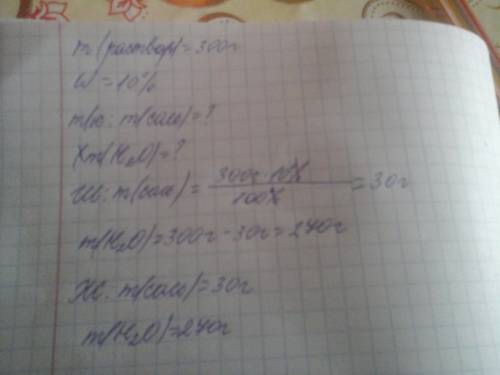 m(раствор)=300г
W=10%
т/к: m(соли)=?
Xm(H₂O)=?
Ш: m(соли)= 300г·10% / 100% =30г
m(H₂O)=300г-30г=270г
Ж: m(соли)=30г
m(H₂O)=270г